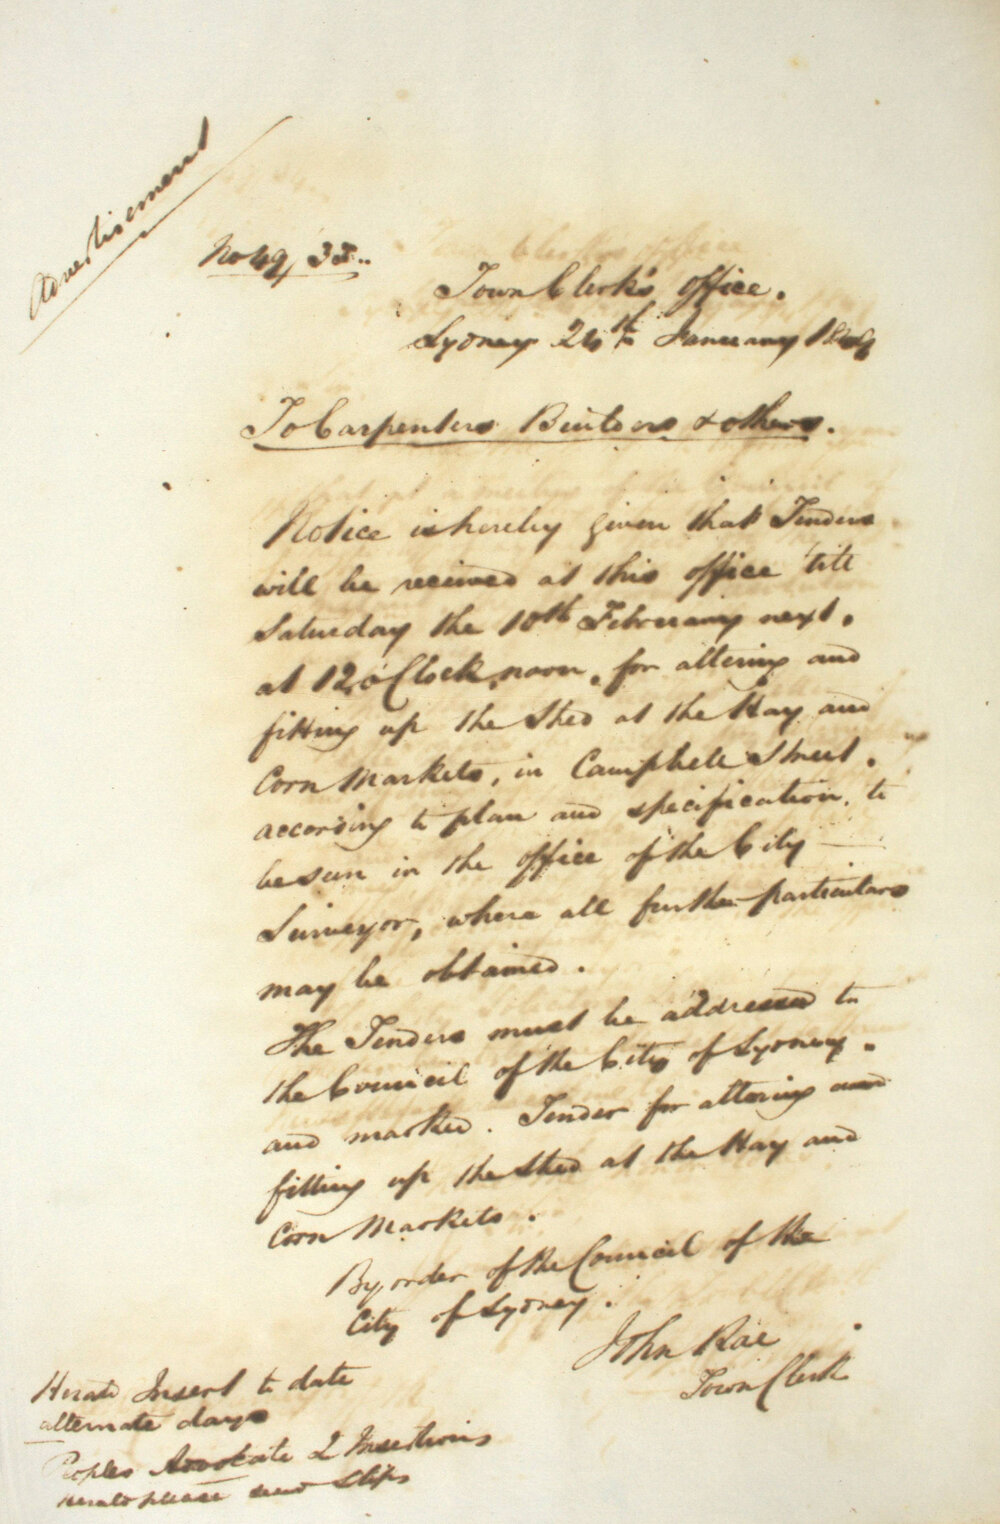 Advertisement
No 49/35..
Town Clerk's office.
Sydney 24th January 1849
To Carpenters Builders & others.
Notice is hereby given that Tenders
will be received at this office till
Saturday the 10th February next.
at 12 o'Clock, noon, for altering and
fitting up the Shed at the Hay and
Corn Markets, in Campbell Street.
according to plan and specification, to
be seen in the office of the City
Surveyor, where all further particulars
may be obtained.
The Tenders must be addressed to
the Council of the City of Sydney.
and marked. Tender for altering and
fitting up the Shed at the Hay and
Corn Markets.
By order of the Council of the
City of Sydney.
John Rae
Town Clerk
Herald Insert to date
alternate days
Peoples Advocate 2 Insertions
Herald please send Slips